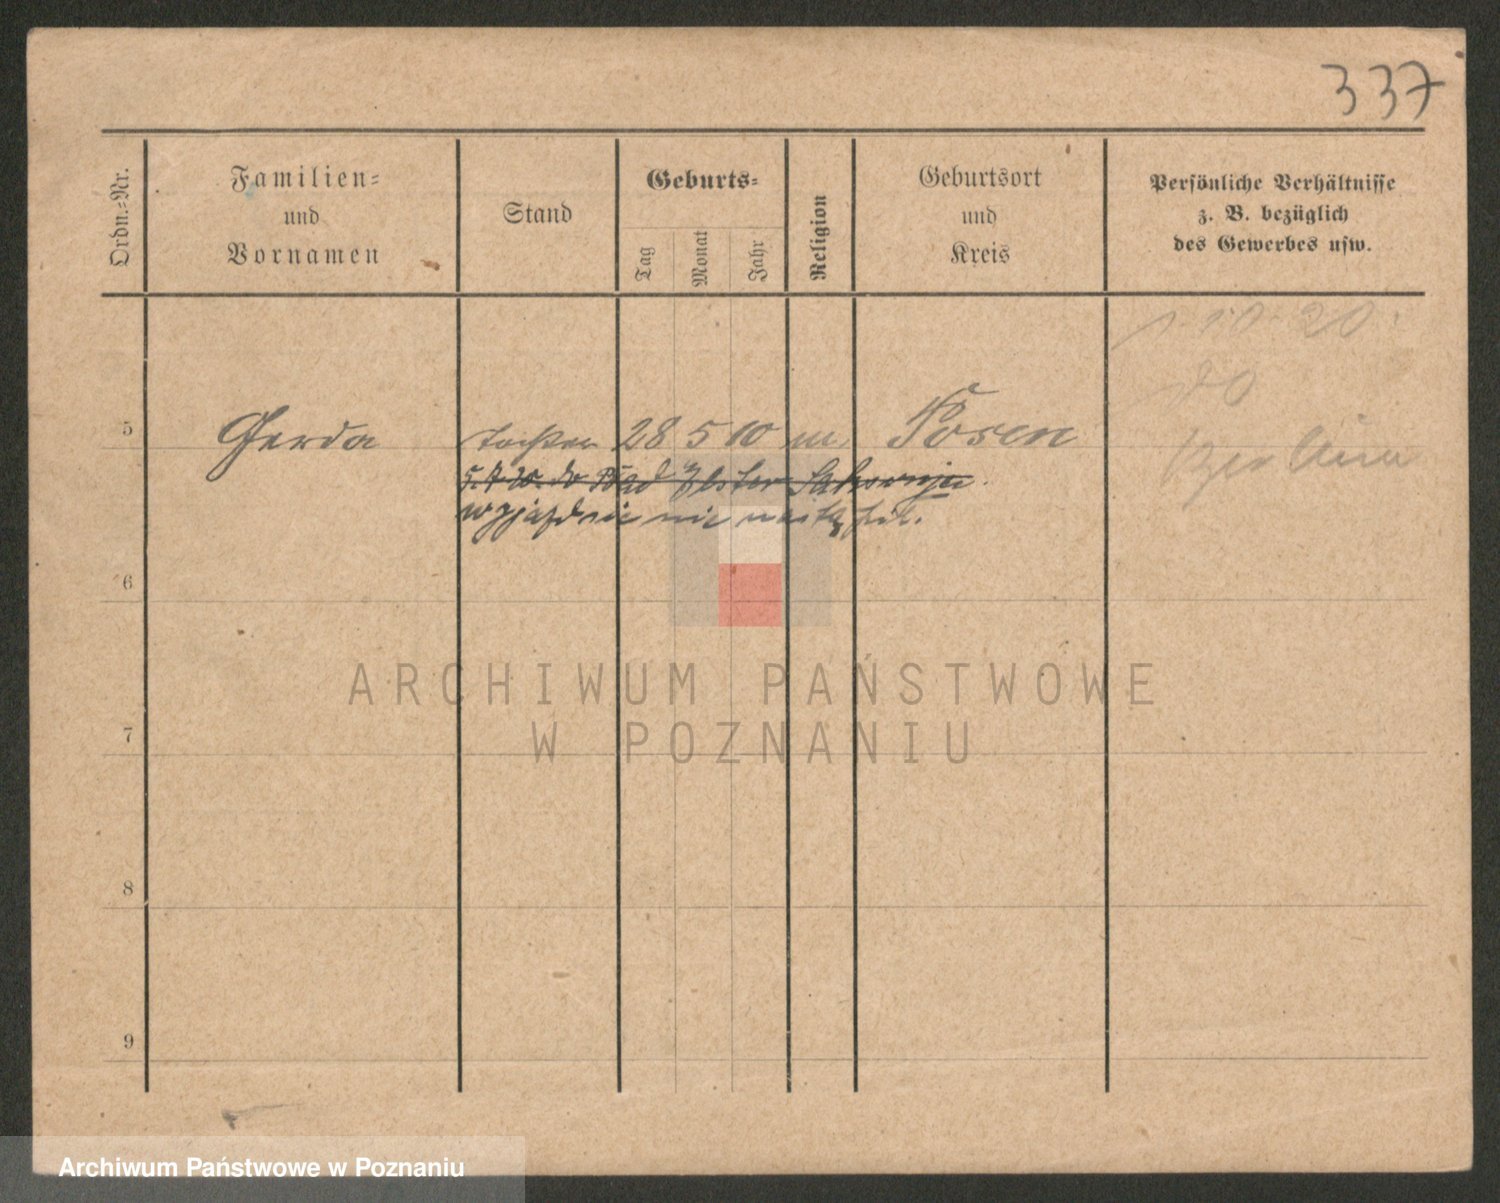 337
Ordn.-Nr.
Familien-
und
Vornamen
Stand
Geburts-
Tag
Monat
Jahr
Religion
Geburtsort
und
Kreis
Persönliche Verhältnisse
z. B. bezüglich
des Gewerbes usw.
1.10.20.
do
Berlina
5 Gerda Tochter 28 5 10 m. Posen
5.7.20. do Bad Elster
nie nastąpił.
6
ARCHIWUM PAŃSTWOWE
W POZNANIU
7
8
9
Archiwum Państwowe w Poznaniu